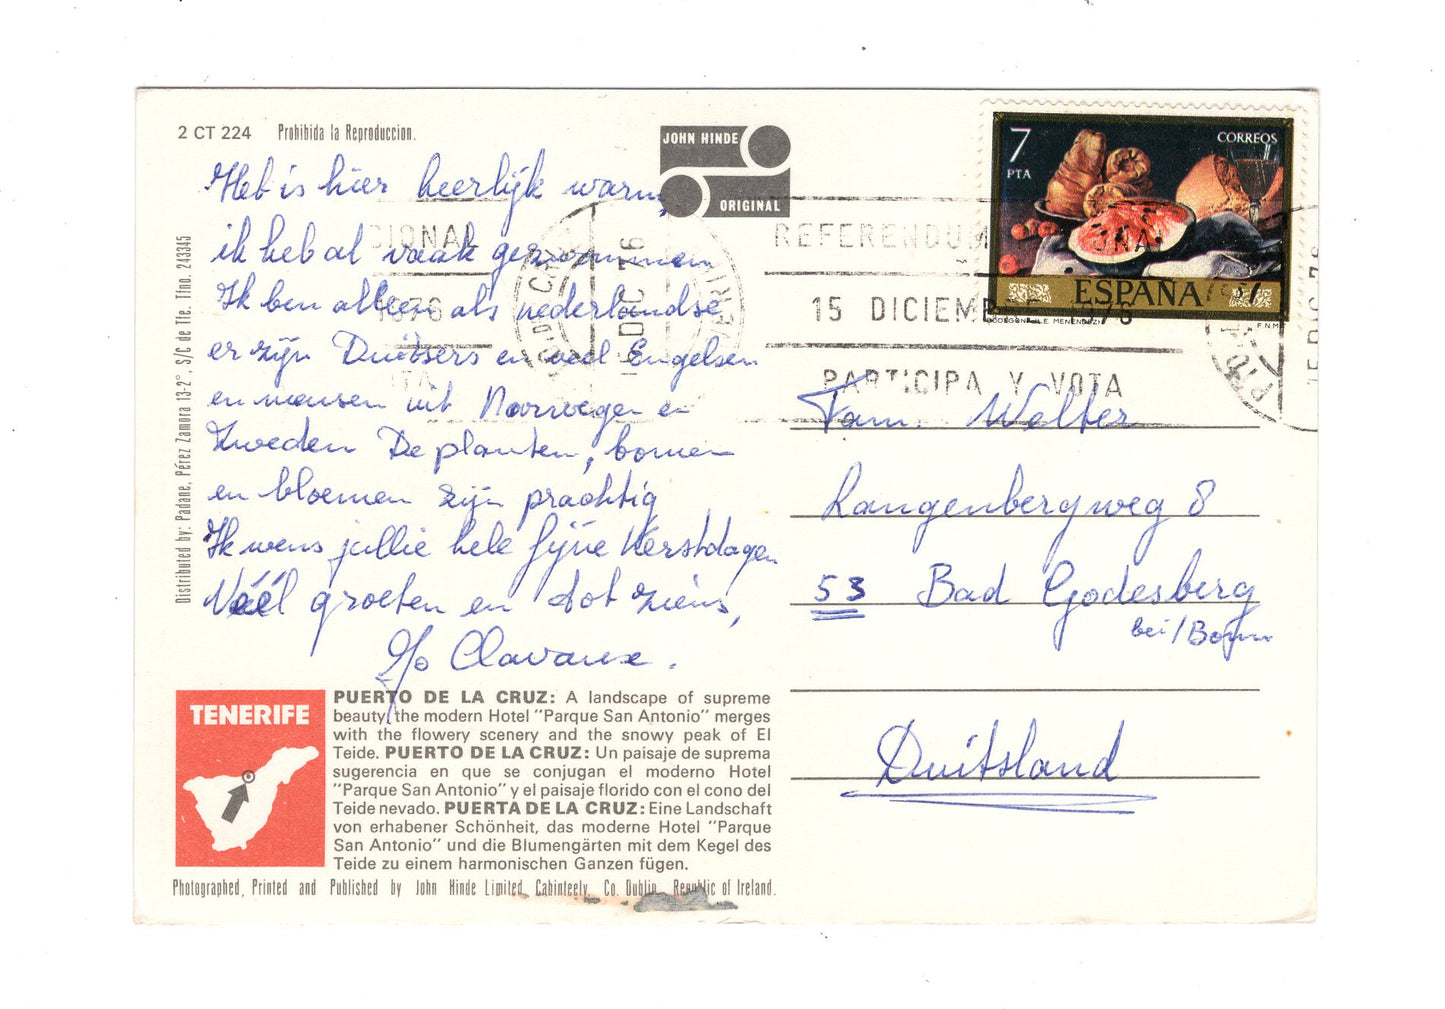 2 CT 224 Prohibida la Reproduccion.
JOHN HINDE
ORIGINAL
7
PTA
CORREOS
ESPAÑA
BODEGON (L.E. MENENDEZ)
F.N.M.T.
CIONAL
1976
REFERENDUM
15 DICIEMBRE 1976
PARTICIPA Y VOTA
DIC 76
Distributed by: Padane, Pérez Zamora 13-2°. S/C de Tfe. Tfno. 243345
Het is hier heerlijk warm,
ik heb al vaak gezwommen
Ik ben alleen als nederlandse
er zijn Duitsers en veel Engelsen
en mensen uit Noorwegen en
Zweden De planten, bomen
en bloemen zijn prachtig
Ik wens jullie hele fijne Kerstdagen
Véél groeten en tot ziens,
Fam. Welter
Langenbergweg 8
53 Bad Godesberg
bei/Bonn
Duitsland
TENERIFE
PUERTO DE LA CRUZ: A landscape of supreme
beauty, the modern Hotel "Parque San Antonio" merges
with the flowery scenery and the snowy peak of El
Teide. PUERTO DE LA CRUZ: Un paisaje de suprema
sugerencia en que se conjugan el moderno Hotel
"Parque San Antonio" y el paisaje florido con el cono del
Teide nevado. PUERTA DE LA CRUZ: Eine Landschaft
von erhabener Schönheit, das moderne Hotel "Parque
San Antonio" und die Blumengärten mit dem Kegel des
Teide zu einem harmonischen Ganzen fügen.
Photographed, Printed and Published by John Hinde Limited, Cabinteely, Co. Dublin, Republic of Ireland.